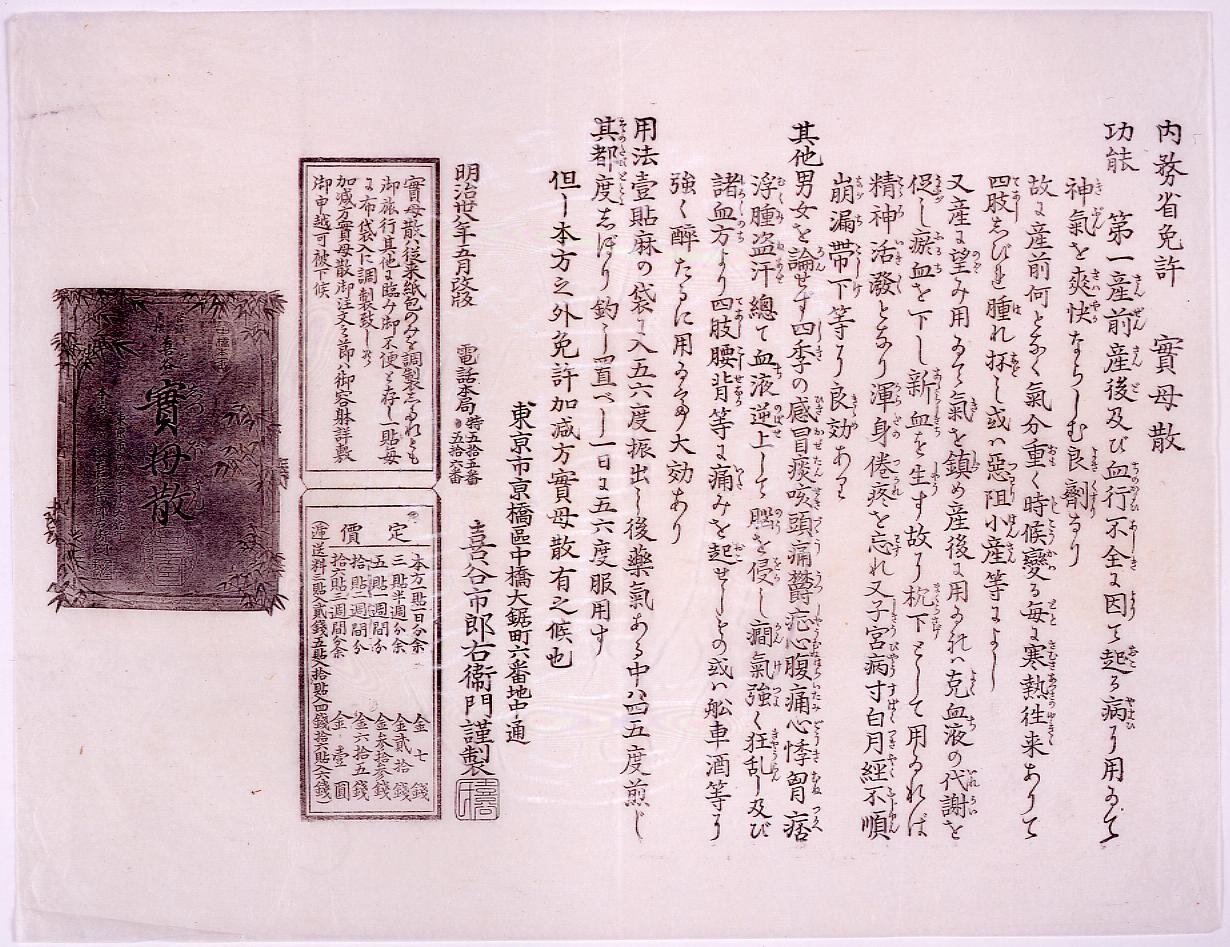 内務省免許　實母散
功能　第一産前産後及び血行不全に因て起る病に用ゐて
神氣を爽快ならしむ良劑なり
故に産前何となく氣分重く時候變る毎に寒熱往来ありて
四肢しびれ腫れ痳し或ハ惡阻小産等によし
又産に望み用ゐて氣を鎮め産後に用ゐれハ克血液の代謝を
促し瘀血を下し新血を生す故に枕下として用ゐれば
精神活潑となり渾身倦疼を忘れ又子宮病寸白月經不順
崩漏帶下等に良効あり
其他男女を論せす四季の感冒痰咳頭痛鬱症心腹痛心悸胃痞
浮腫盗汗總て血液逆上して腦を侵し癇氣強く狂乱し及び
諸血方より四肢腰背等に痛みを起せしもの或ハ舩車酒等に
強く醉たるに用ゐて大効あり
用法壹貼麻の袋に入五六度振出し後藥氣ある中ハ四五度煎じ
其都度しぼり釣し置べし一日に五六度服用す
但し本方之外免許加減方實母散有之候也
東京市京橋區中橋大鋸町六番地中通
喜谷市郎右衞門謹製
明治卅八年五月改版　電話本局特五拾五番
五拾六番
實母散ハ従来紙包のみを調製したれとも
御旅行其他に臨み御不便と存し一貼毎
に布袋入に調製致し候
加減方實母散御注文之節ハ御容躰詳敷
御申越可被下候
定價
本方一貼一日分余　金七錢
三貼半週分余　金貳拾錢
五貼一週間分　金参拾参錢
拾貼二週間分　金六拾五錢
拾六貼三週間分余　金壹圓
(運送料三貼入貳錢五貼入拾貼入四錢拾六貼入六錢)
喜谷
實母散